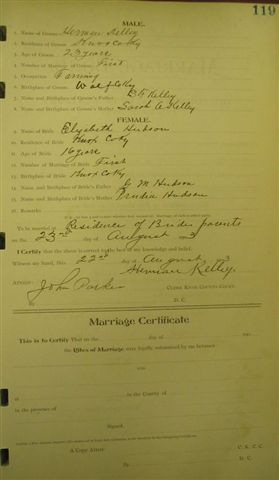 119
MALE.
1. Name of Groom Herman Kelley
2. Residence of Groom Knox Co Ky
3. Age of Groom 23 years
4. Number of Marriage of Groom First
5. Occupation Farming
6. Birthplace of Groom Co Ky
7. Name and Birthplace of Groom's Father Kelley
8. Name and Birthplace of Groom's Mother Sarah A Kelley
FEMALE.
9. Name of Bride Elizabeth Hudson
10. Residence of Bride Knox Co Ky
11. Age of Bride 16 years
12. Number of Marriage of Bride First
13. Birthplace of Bride Knox Co Ky
14. Name and Birthplace of Bride's Father M Hudson
15. Name and Birthplace of Bride's Mother Hudson
16. Remarks
To be married at Residence of Brides parents
on the 23rd day of August 3
I Certify that the above is correct to the best of my knowledge and belief.
Witness my hand, this 22nd day of August 3
Herman Kelley
ATTEST:
John Parker CLERK KNOX COUNTY COURT.
D. C.
Marriage Certificate
This is to Certify That on the day of
the Rites of Marriage were legally solemnized by me between
and
at in the County of
in the presence of
Signed,
A Copy Attest: C. K. C. C.
By D. C.